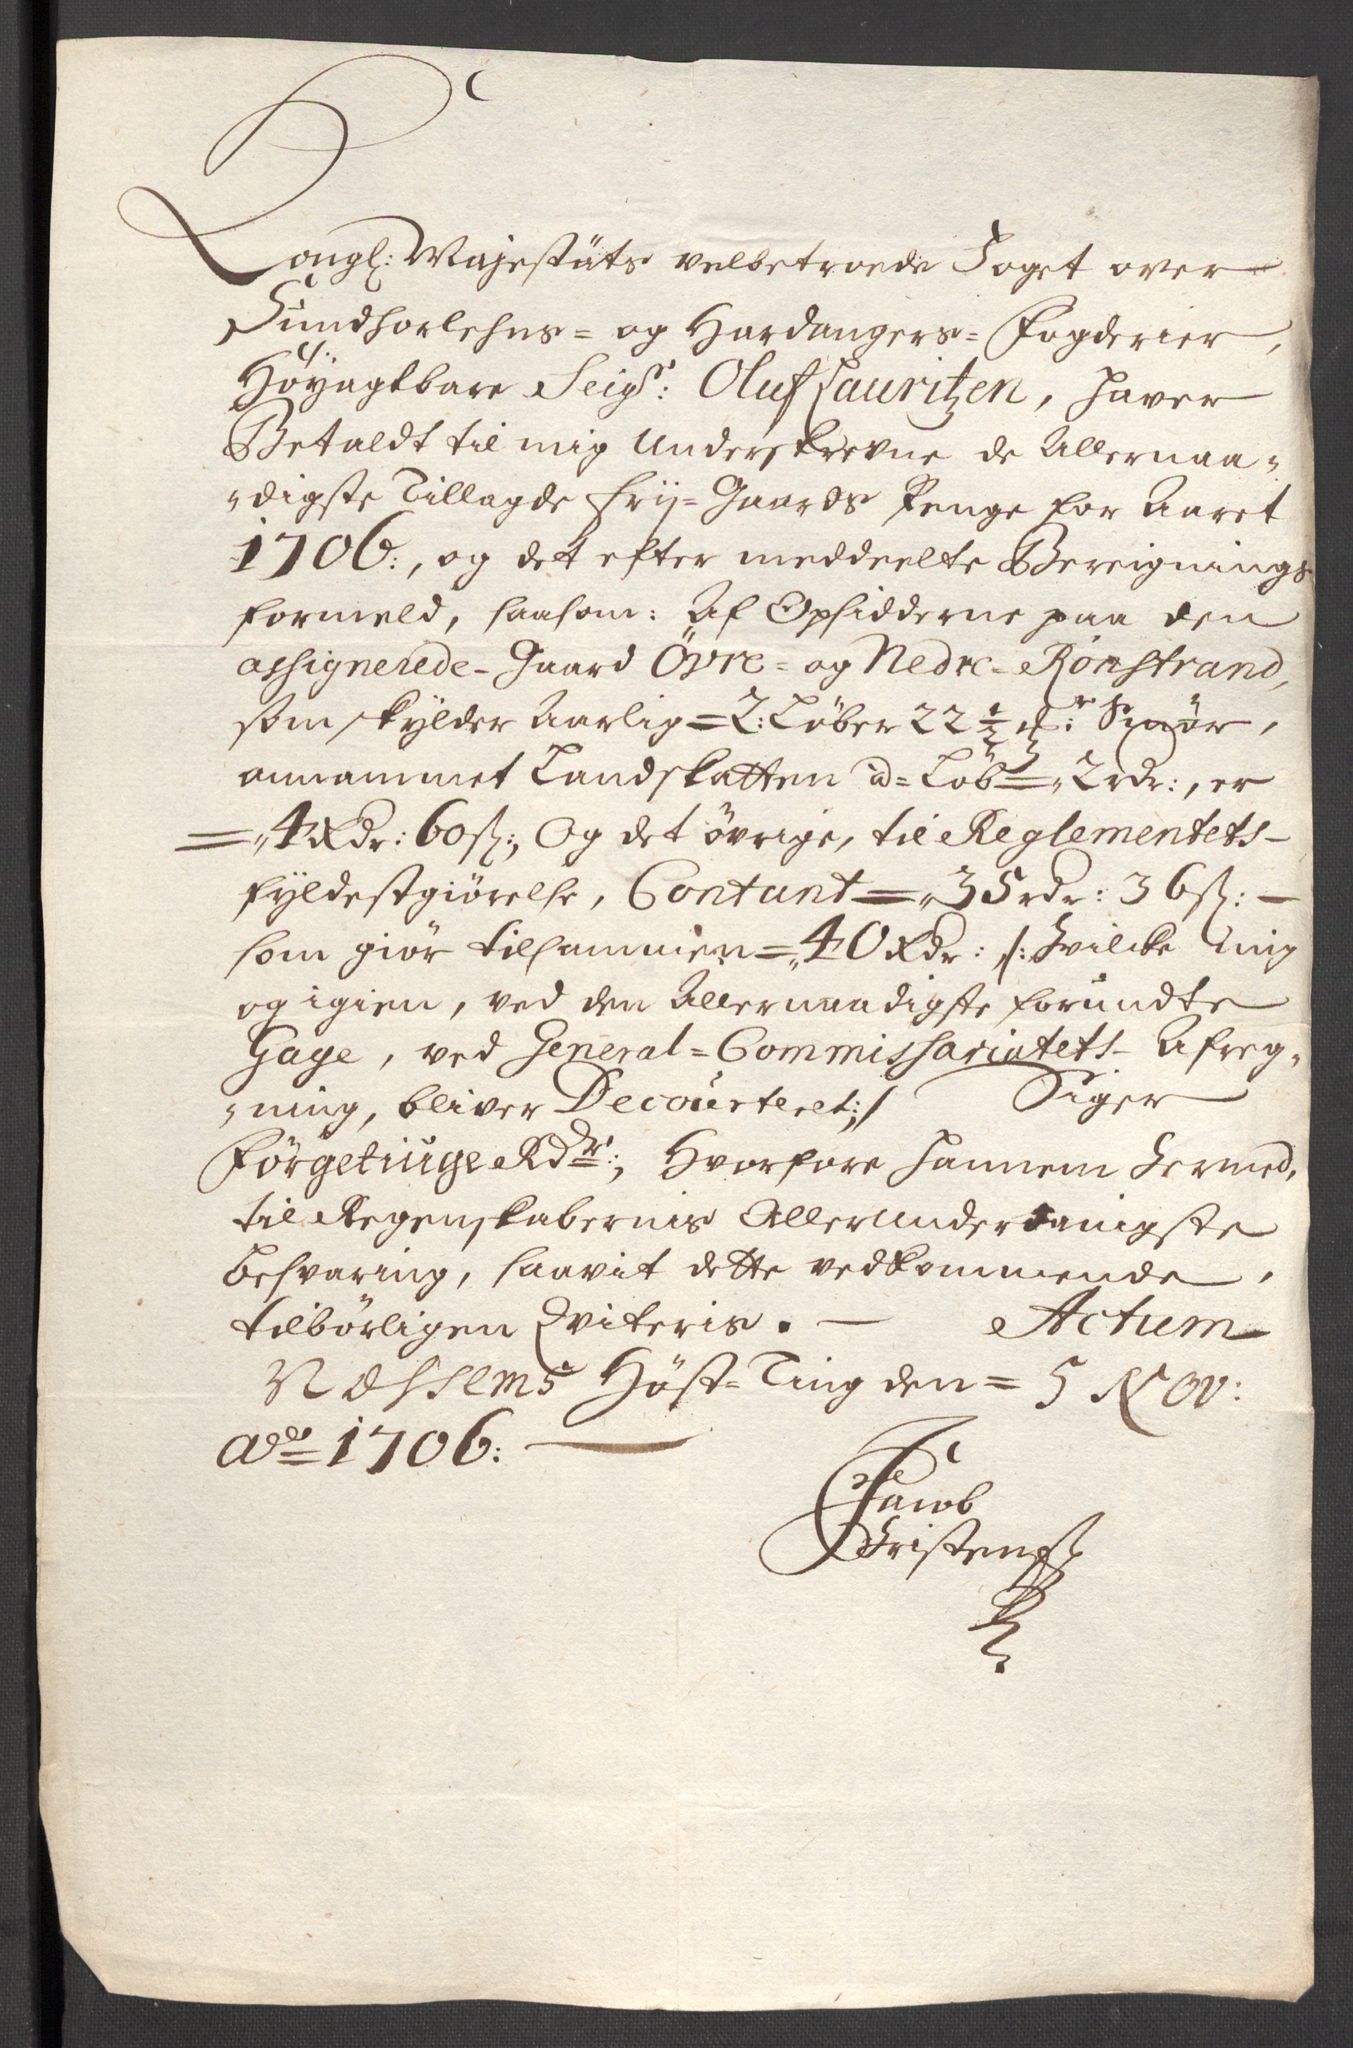 Kongl: Majestäts velbetroede Foget over
Sundhorlehns= og Hardangers= Fogderier,
Höyagtbare Seigr: Oluf Lauritzen, haver
Betaldt til mig Underskrevne de Allernaa-
-digste Tillagde frij=Gaards Penge for Aaret
1706:, og det efter meddeelte Bereignings
formeld, saasom: Af Opsidderne paa den
assignerede- Gaard Övre= og Nedre- Rönstrand,
som skylder Aarlig= 2: Løber 22 1/2 Smör,
annammet Landskatten ad= Löb= 2 rdr:, er
= 4 Rdr: 60 ß:, Og det övrige, til Reglementets-
fyldestgiørelse, Contant= 35 rdr: 36 ß: -
som giör tilsammen= 40 Rdr: /: Hvilcke mig
og igien, ved den Allernaadigste forundte
Gage, ved General=Commissariatets- Afreg-
-ning, bliver Decourteret:/ Siger
Förgetiuge Rdr:, Hvorfore hannem hermed,
til Regenskabernis Allerunderdanigste
besvaring, saavit dette vedkommende,
tilbörligen Qviteris. - Actum
Höst=Ting den= 5 Nov:
Ao 1706:
Jacob
Christensß